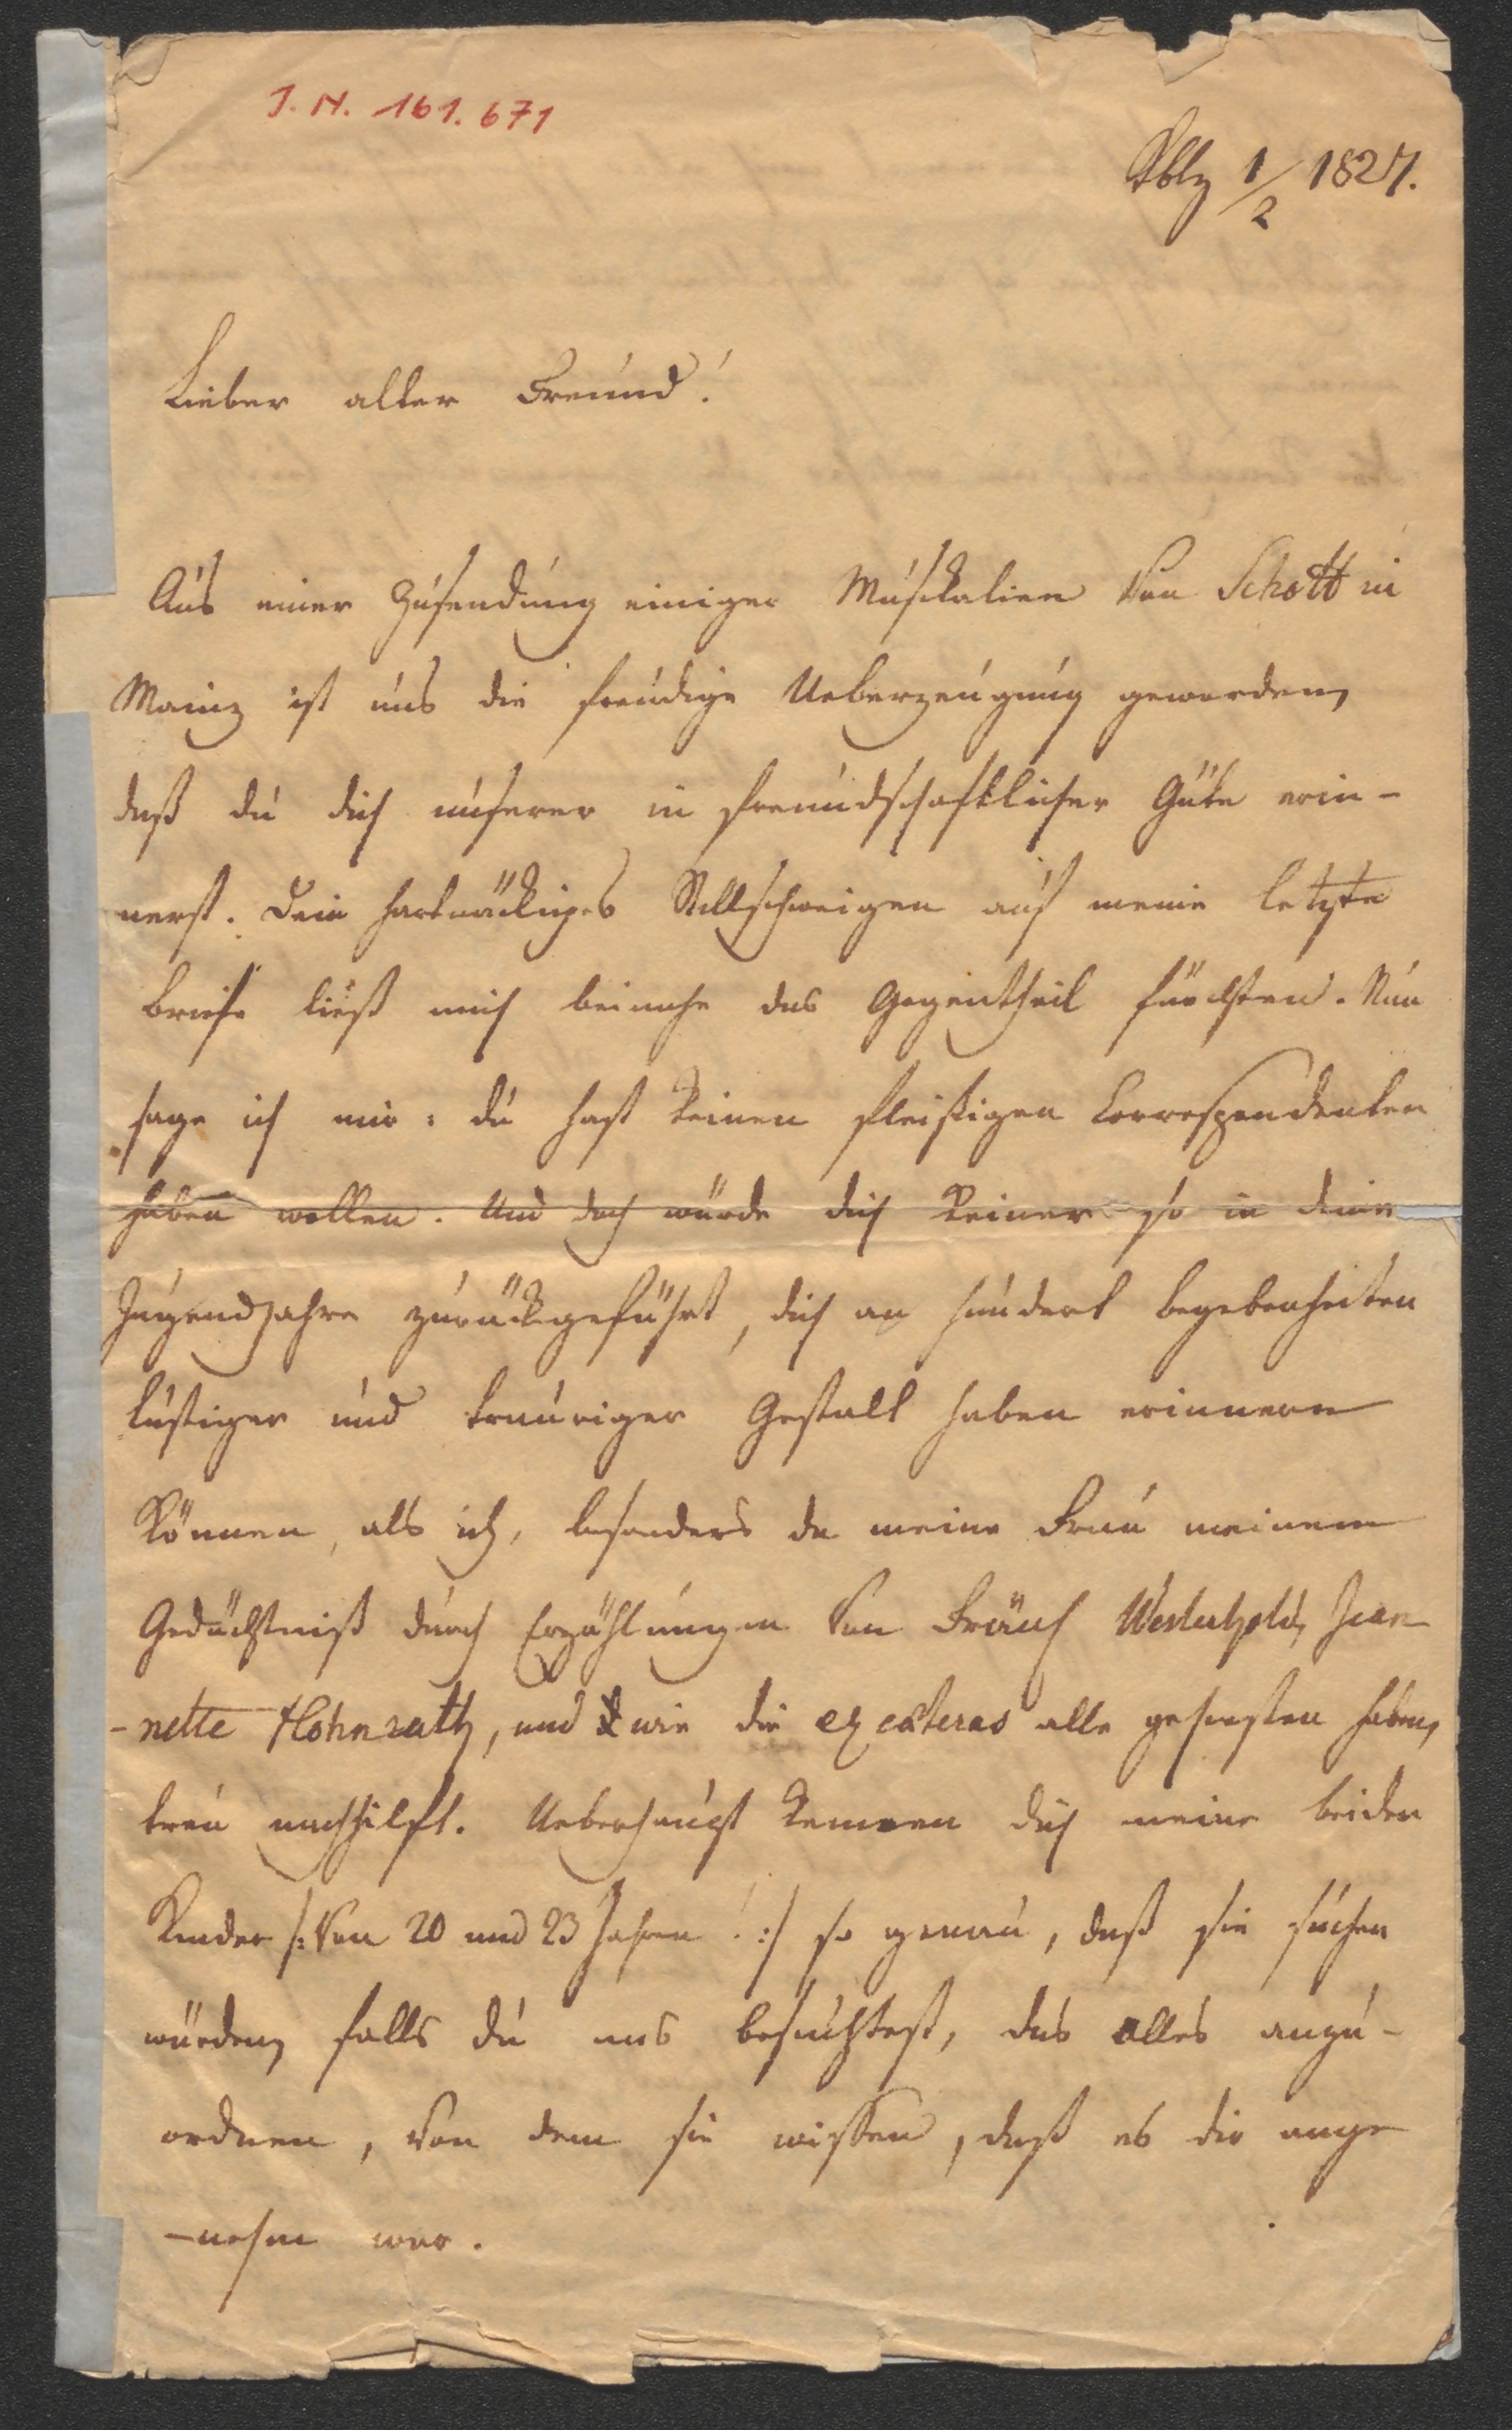 J. N. 161.671
Kblz 1/2 1827.
Lieber alter Freund!
Aus einer Zusendung einiger Musikalien von Schott in
Mainz ist uns die freudige Ueberzeugung geworden,
daß du dich unserer in freundschaftlicher Güte erin-
nerst. Dein hartnäckiges Stillschweigen auf meine letzte
Briefe ließ mich beinahe das Gegentheil fürchten. Nun
sage ich mir: du hast keinen fleißigen Correspondenten
haben wollen. Und doch würde dich keiner so in deine
Jugendjahre zurückgeführt, dich an hundert Begebenheiten
lustiger und trauriger Gestalt haben erinnern
können, als ich, besonders da meine Frau meinem
Gedächtniß durch Erzählungen von Fräul Westerhold, Jean
-nette Hohnrath, und wie die ex cæteras alle geheißen haben,
treu nachhilft. Ueberhaupt kennen dich meine beiden
Kinder /: von 20 und 23 Jahren! :/ so genau, daß sie suchen
würden, falls du uns besuchtest, das alles anzu-
ordnen, von dem sie wissen, daß es dir ange
-nehm war.